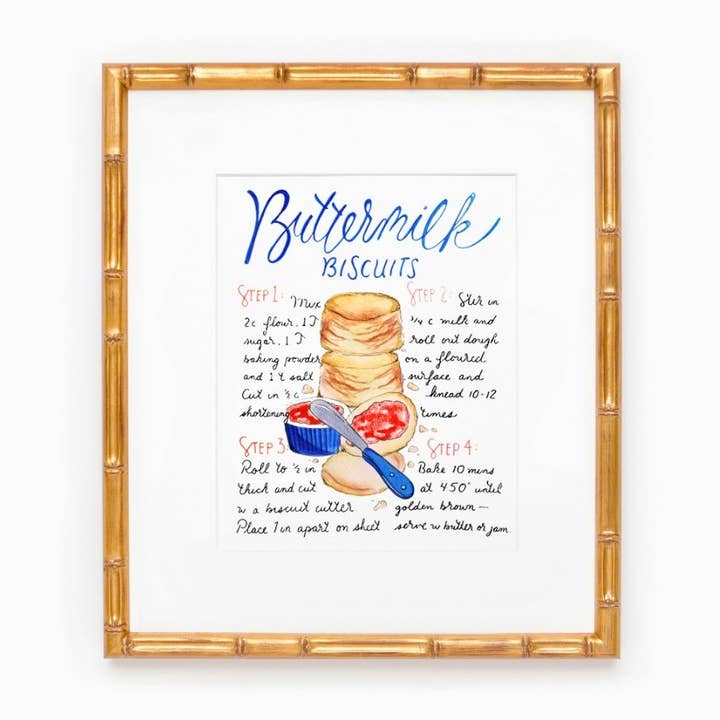 Buttermilk
BISCUITS
STEP 1: Mix
2c flour, 1T
sugar, 1T
baking powder
and 1t salt
Cut in ½c
shortening
STEP 2: Stir in
¾ c milk and
roll out dough
on a floured
surface and
knead 10-12
times
STEP 3:
Roll to ½ in
thick and cut
w a biscuit cutter
Place 1in apart on sheet
STEP 4:
Bake 10 mins
at 450° until
golden brown—
serve w butter or jam